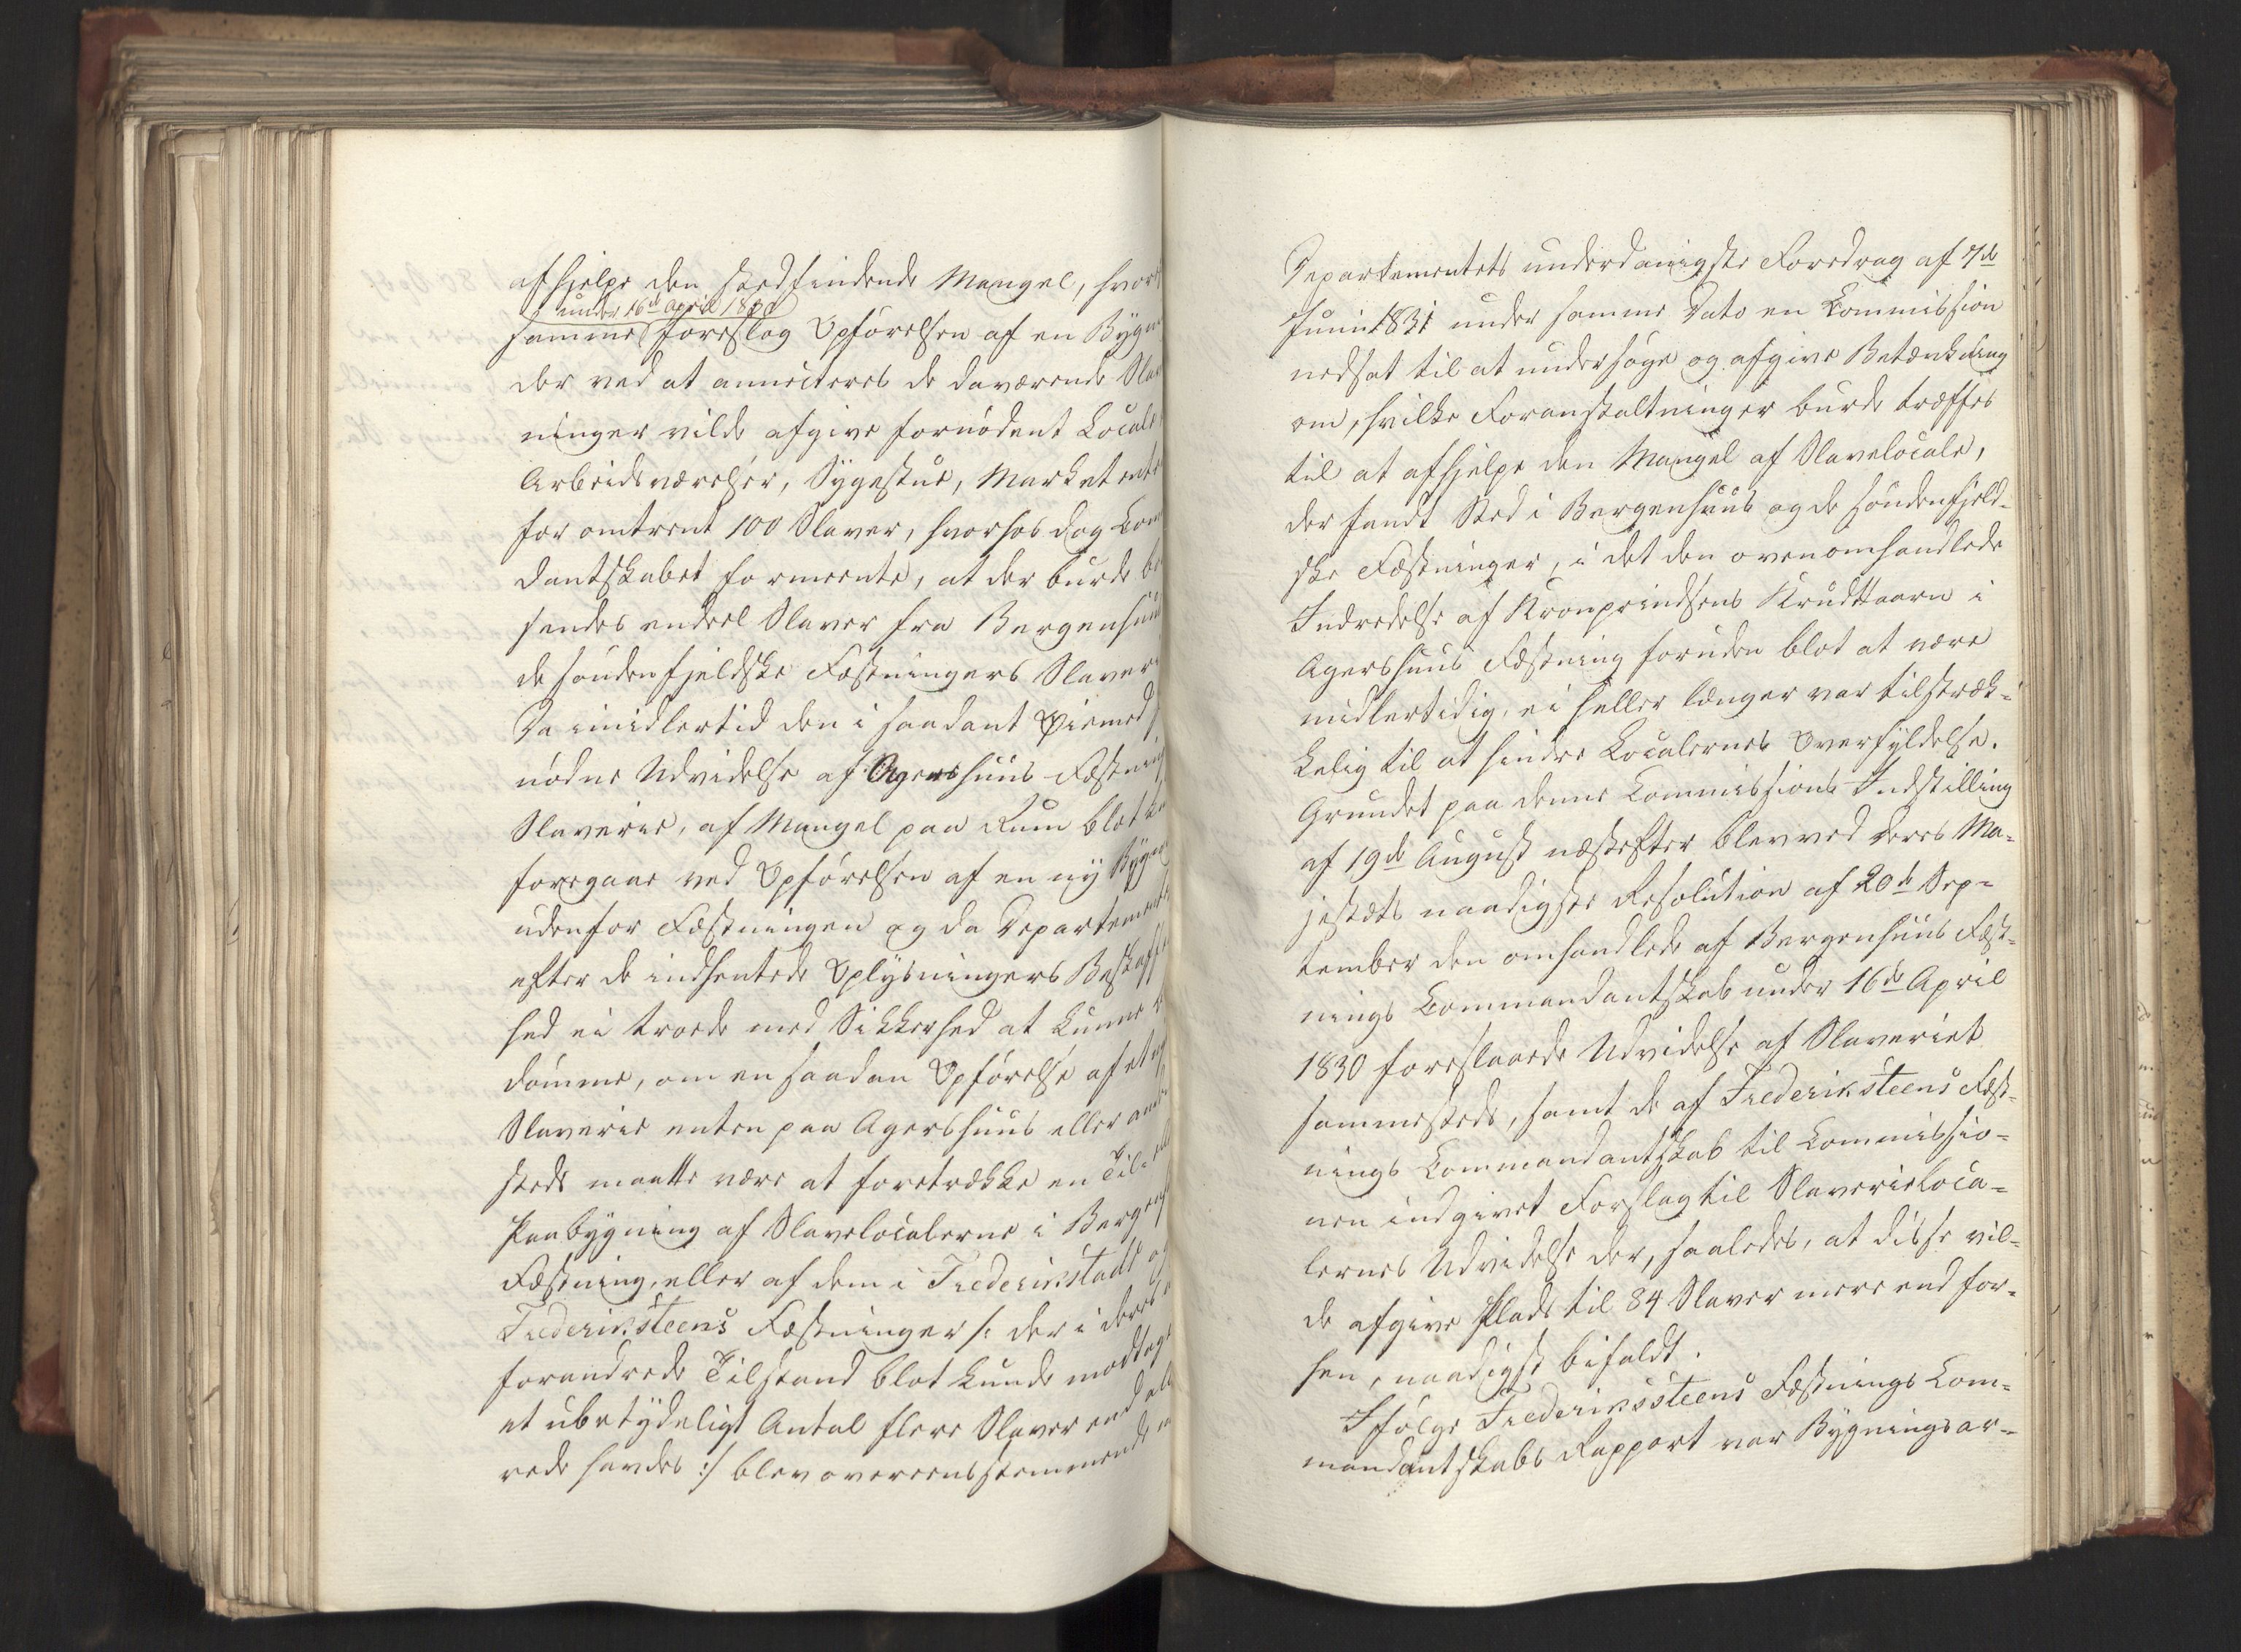 afhjelpe den stedfindende Mangel, hvor
under 16de April 1830
samme foreslog Opførelsen af en Bygn
der ved at annecteres de daværende Slav
ninger vilde afgive fornødent Locale
Arbeidsværelser, Sygestue, Marketent
for omtrent 100 Slaver, hvorhos dog Com
dantskabet formeente, at der burde be
sendes endeel Slaver fra Bergenhuu
de søndenfjeldske Fæstningers Slaver
Da imidlertid den i saadant Øiemed
nødne Udvidelse af Agershuus Fæstning
Slaverie, af Mangel paa Rum blot ku
foregaae ved Opførelsen af en ny Bygn
udenfor Fæstningen og da Departemente
efter de indhentede Oplysningers Beskaffe
hed ei troede med Sikkerhed at kunne
dømme, om en saadan Opførelse af et n
Slaverie enten paa Agershuus eller and
steds maatte være at foretrække en Til-
Paabygning af Slavelocalerne i Bergen
Fæstning, eller af dem i Frederikstads og
Frederiksteens Fæstninger /: der i deres
forandrede Tilstand blot kunde modtage
et ubetydeligt Antal flere Slaver end all
rede havdes :/ blev overeensstemmende
Departementets underdanigste Foredrag af 7de
Junii 1831 under samme Dato en Commission
nedsat til at undersøge og afgive Betænkning
om, hvilke Foranstaltninger burde træffes
til at afhjelpe den Mangel af Slavelocale,
der fandt Sted i Bergenhuus og de søndenfjeld-
ske Fæstninger, i det den ovenomhandlede
Indredelse af Kronprindsens Krudttaarn i
Agershuus Fæstning foruden blot at være
midlertidig, ei heller længer var tilstræk-
kelig til at hindre Localernes Overfyldelse.
Grundet paa denne Commissions Indstilling
af 19de August næstefter blev ved Deres Ma-
jestæts naadigste Resolution af 20de Sep-
tember den omhandlede af Bergenhuus Fæst-
nings Commandantskab under 16de April
1830 foreslaaede Udvidelse af Slaveriet
sammesteds, samt de af Frederiksteens Fæst-
nings Commandantskab til Commissio-
nen indgivet Forslag til Slaverieloca-
lernes Udvidelse der, saaledes, at disse vil-
de afgive Plads til 84 Slaver mere end før-
hen, naadigst bifaldt.
Ifølge Frederikssteens Fæstnings Com-
mandantskabs Rapport var Bygningsar-